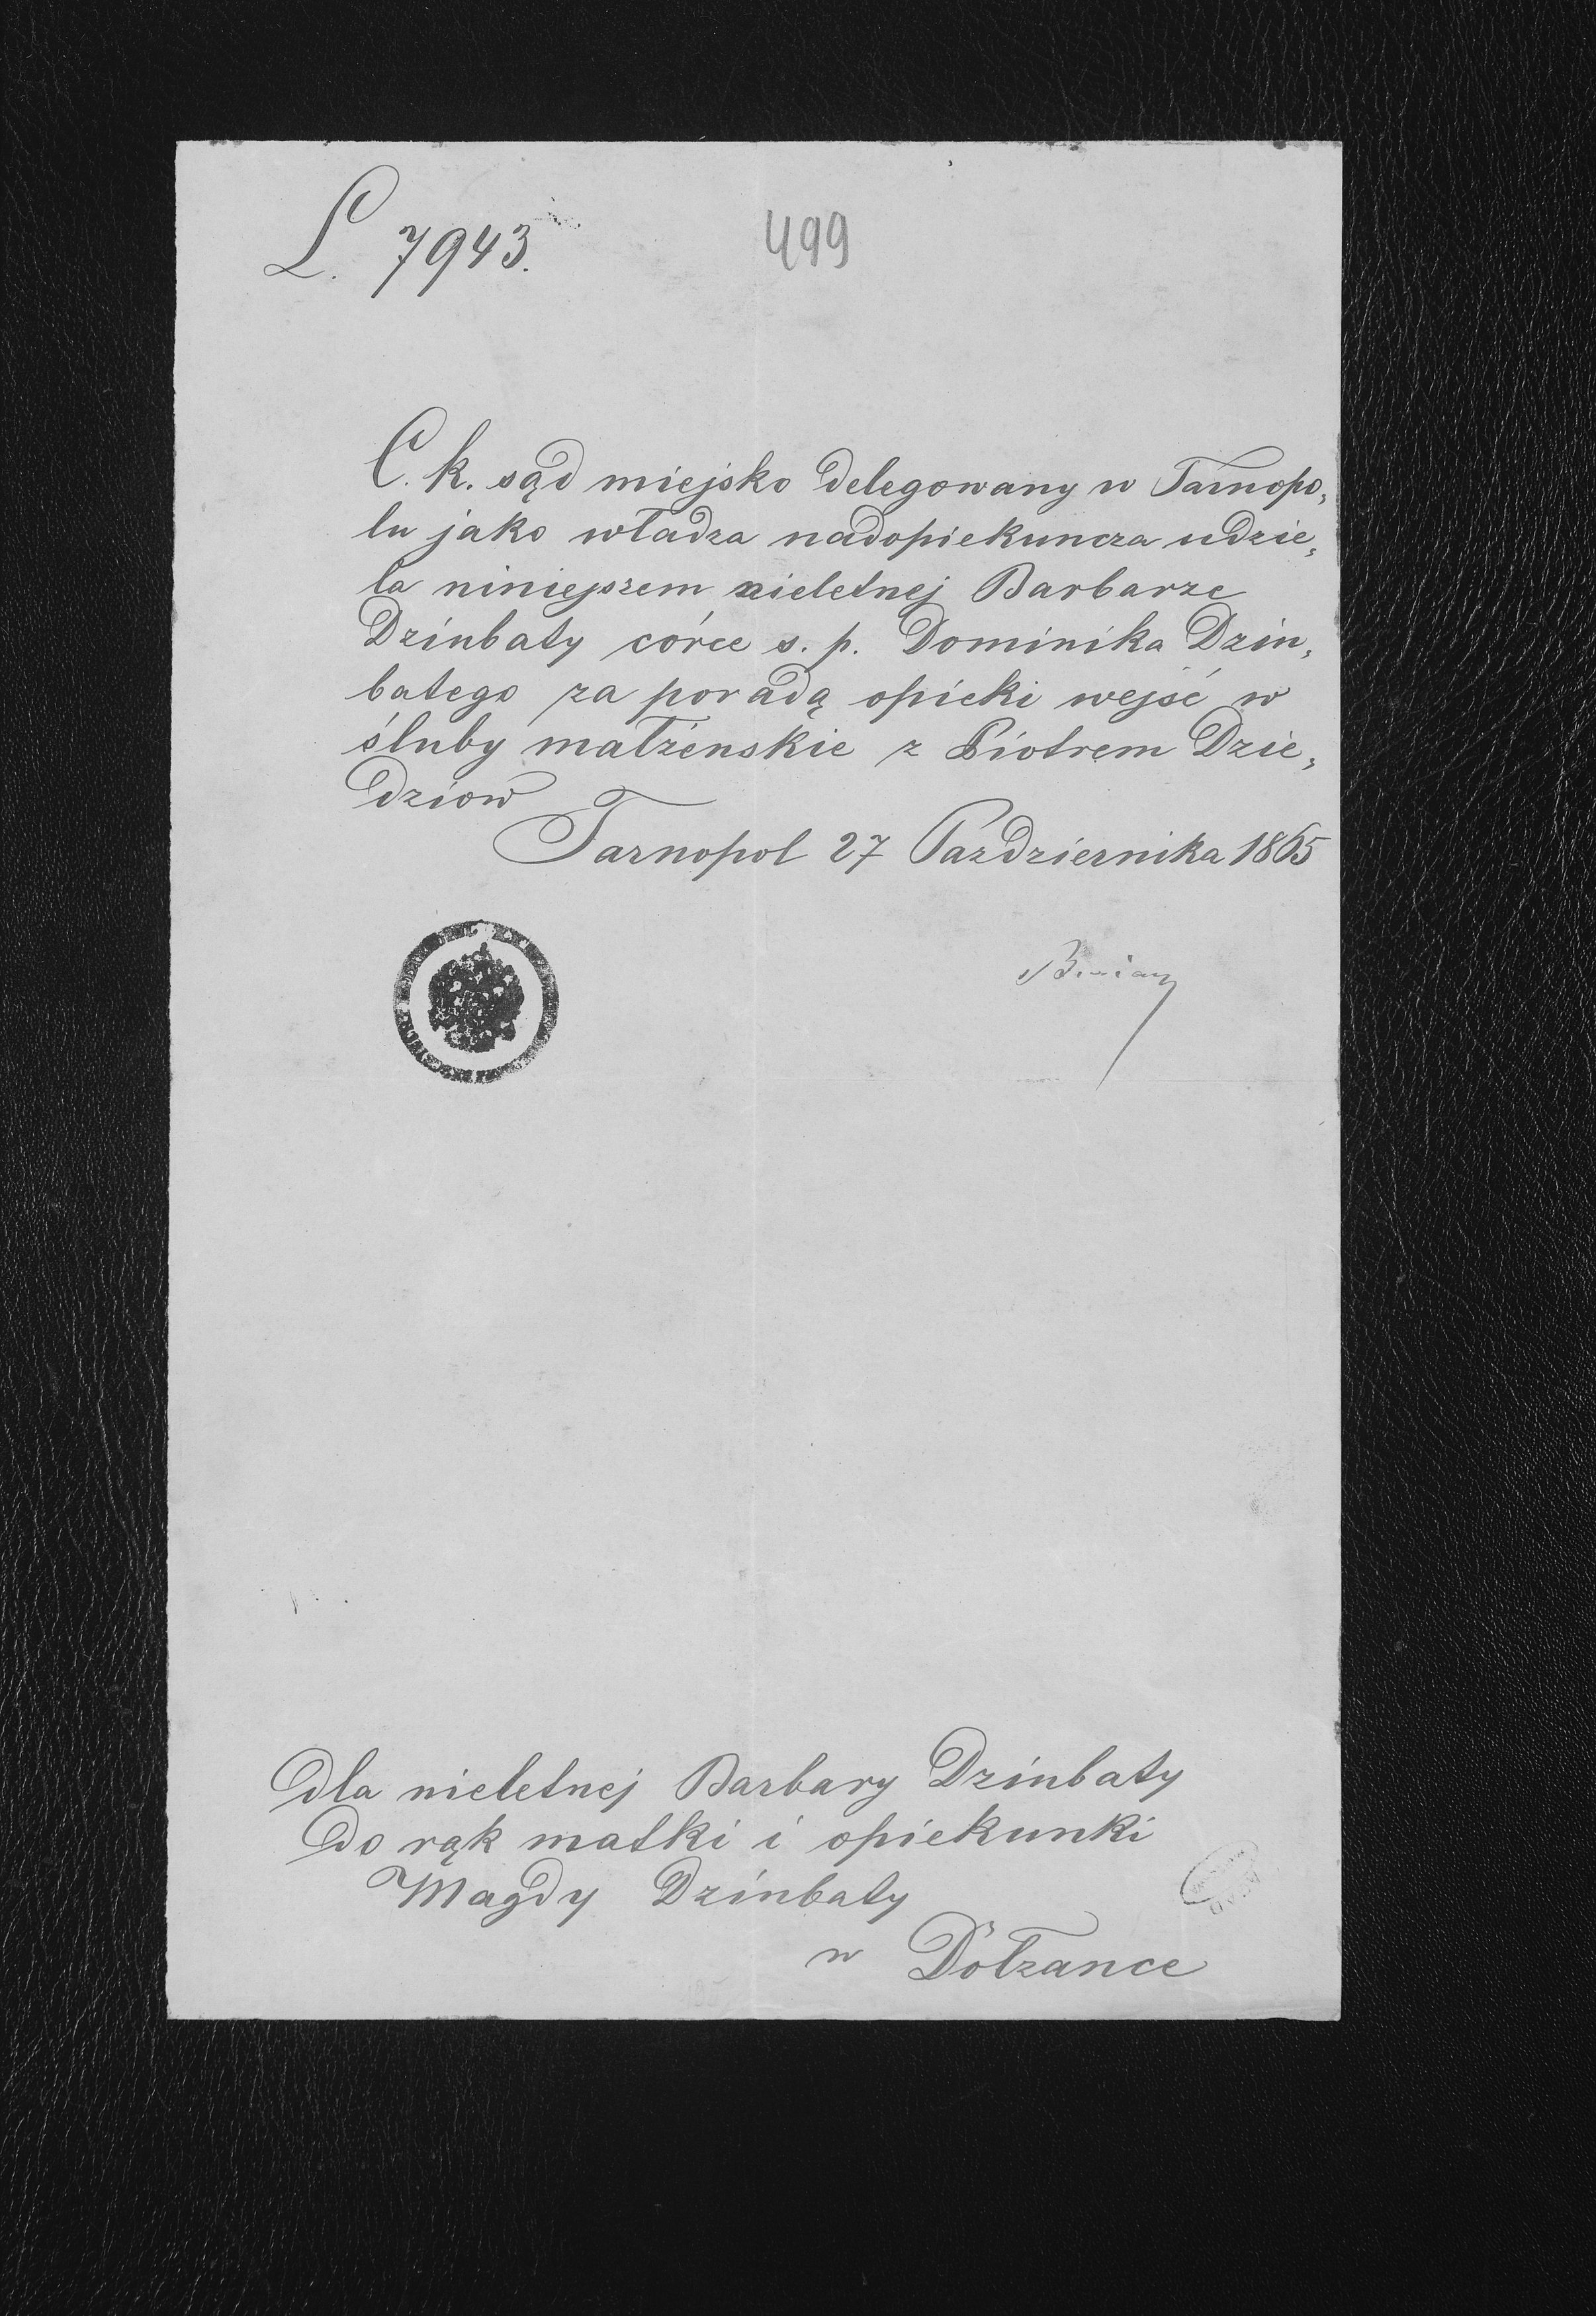 L. 7943.
499
C. k. sąd miejsko delegowany w Tarnopo„
lu jako władza nadopiekuncza udzie„
la niniejszem nieletnej Barbarze
Dzinbaty córce s. p. Dominika Dzin„
batego za poradą opieki wejść w
śluby małżenskie z Piotrem Dzie„
dziow
Tarnopol 27 Października 1865
Dla nieletnej Barbary Dzinbaty
Do rąk matki i opiekunki
Magdy Dzinbaty
w Dołzance